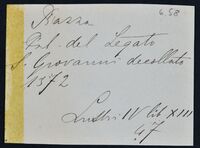 6.58
Piazza
Pal. del Legato
S. Giovanni decollato
1372
Lustri IV lib XIII
47